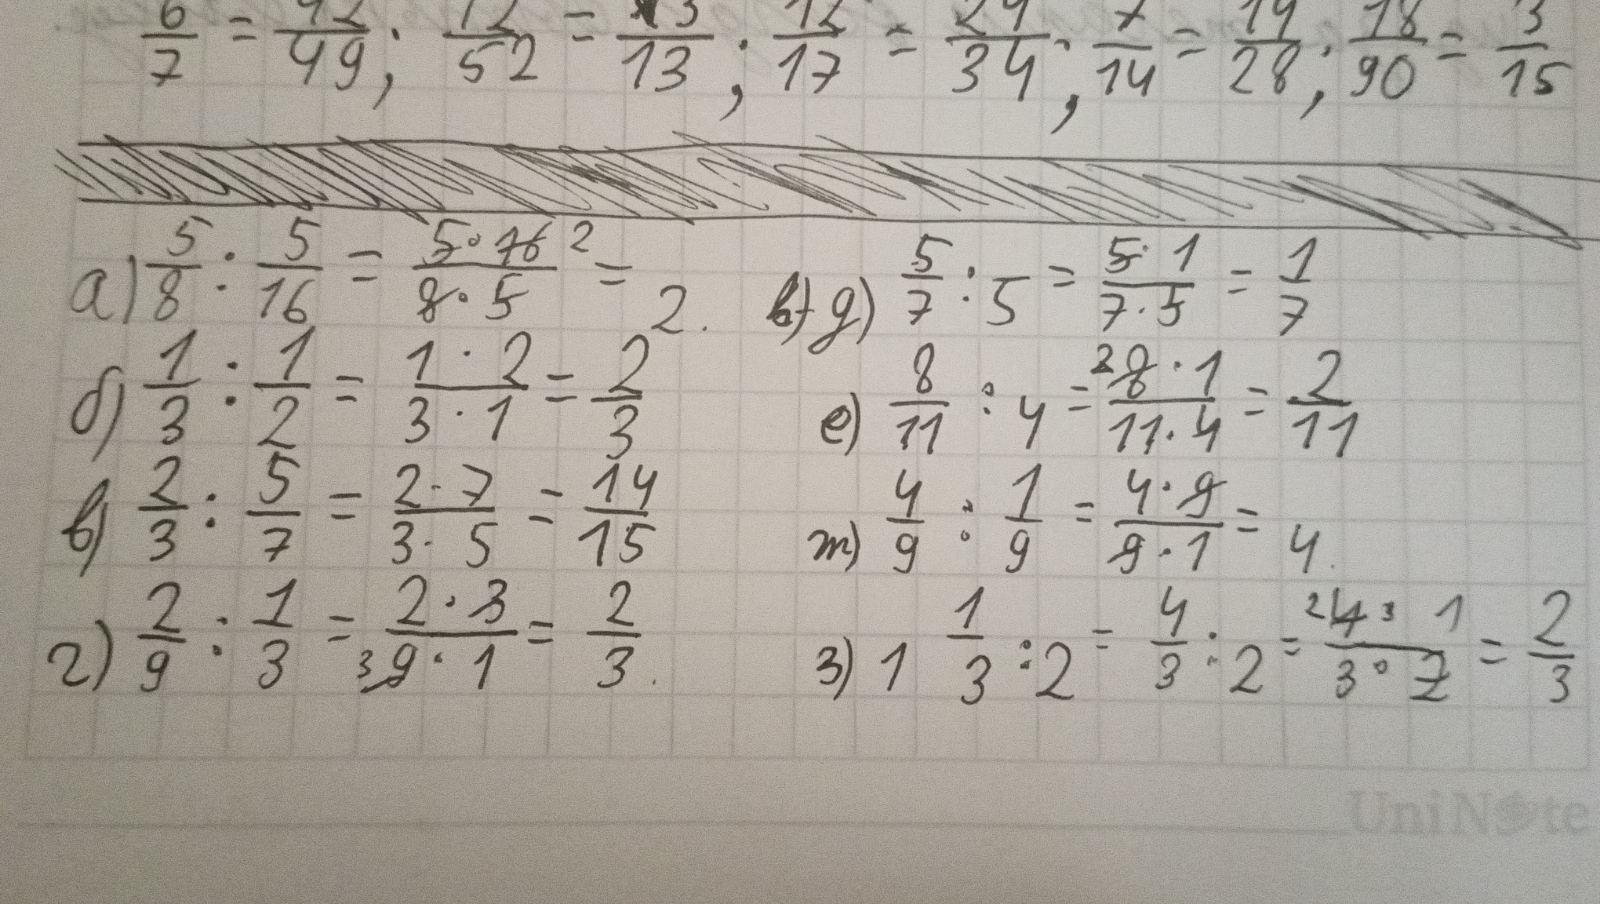 6/7 = 42/49; 12/52 = 3/13; 12/17 = 24/34; 7/14 = 14/28; 18/90 = 3/15
а) 5/8 : 5/16 = 5·16 2/8·5 = 2.
б) 1/3 : 1/2 = 1·2/3·1 = 2/3
в) 2/3 : 5/7 = 2·7/3·5 = 14/15
г) 2/9 : 1/3 = 2·3/3 9·1 = 2/3.
д) 5/7 : 5 = 5·1/7·5 = 1/7
е) 8/11 : 4 = 2 8·1/11·4 = 2/11
ж) 4/9 : 1/9 = 4·9/9·1 = 4.
з) 1 1/3 : 2 = 4/3 : 2 = 2 4·1/3·2 = 2/3
UniNote